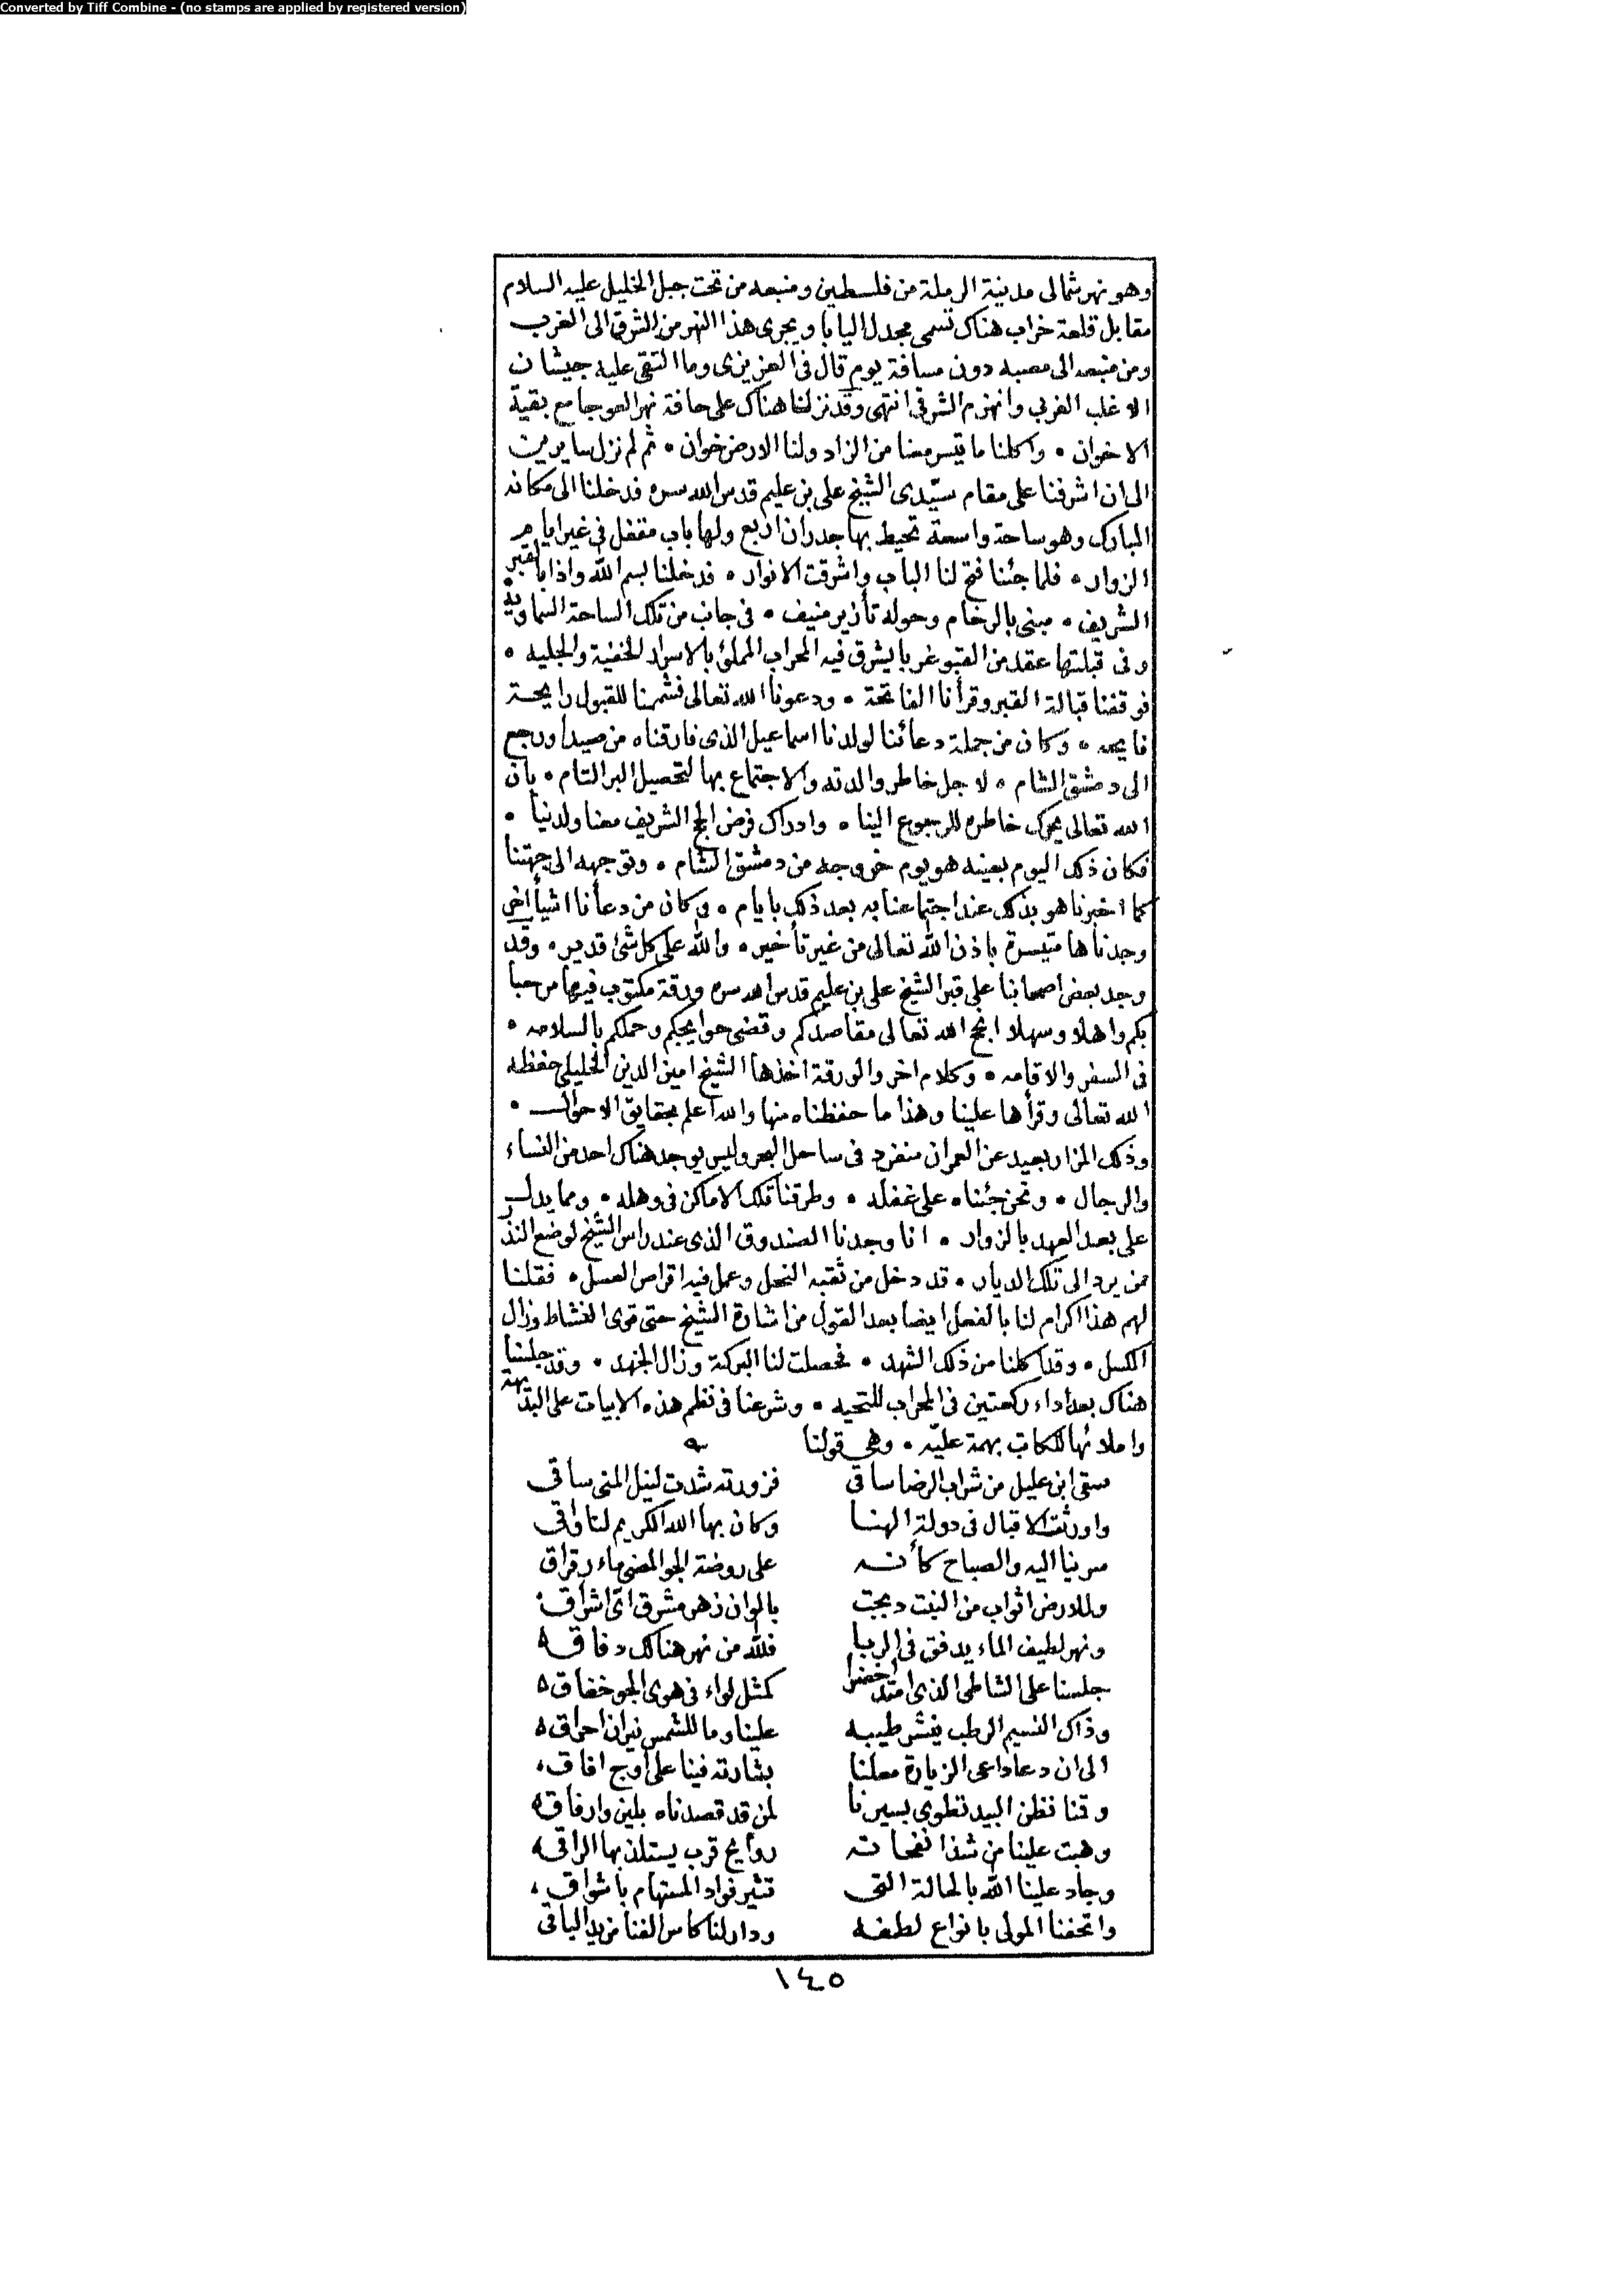 Converted by Tiff Combine - (no stamps are applied by registered version)
وهو نهر شمالى مدينة الرملة من فلسطين ومنبعه من تحت جبل الخليل عليه السلام
مقابل قلعة خراب هناك تسمى مجدل اليابا ويجرى هذا النهر من الشرق الى الغرب
ومن منبعه الى مصبه دون مسافة يوم قال فى العزيزى وما التقى عليه جيشان
الا غلب الغربي وانهزم الشرقى انتهى وقد نزلنا هناك على حافة نهر العوجا مع بقية
الاخوان • واكلنا ما تيسر معنا من الزاد ولنا الارض خوان • ثم لم نزل سايرين
الى ان اشرفنا على مقام سيّدى الشيخ على بن عليم قدس الله سره فدخلنا الى مكانه
المبارك وهو ساحة واسعة تحيط بها جدران اربع ولها باب مقفل فى غير ايام
الزوار • فلما جئنا فتح لنا الباب واشرقت الانوار • فدخلنا بسم الله واذا بالقبر
الشريف • مبنى بالرخام وحوله تأزير منيف • فى جانب من تلك الساحة السماوية
وفى قبلتها عقد من القبو غربا يشرق فيه المحراب المملئ بالاسرار الخفية والجليه •
فوقفنا قبالة القبر وقرأنا الفاتحة • ودعونا الله تعالى فشممنا للقبول رايحة
فايحه • وكان من جملة دعائنا لولدنا اسماعيل الذى فارقناه من صيدا ورجع
الى دمشق الشام • لاجل خاطر والدته والاجتماع بها لتحصيل البر التام • بان
الله تعالى يحرك خاطره للرجوع الينا • وادراك فرض الحج الشريف معنا ولدنيا •
فكان ذلك اليوم بعينه هو يوم خروجه من دمشق الشام • وتوجهه الى جهتنا
كما اخبرنا هو بذلك عند اجتماعنا به بعد ذلك بايام • وكان من دعأنا اشيأ اخر
وجدناها متيسرة باذن الله تعالى من غير تأخير • والله على كل شئ قدير • وقد
وجد بعض اصحابنا على قبر الشيخ على بن عليم قدس الله سره ورقة مكتوب فيها مرحبا
بكم واهلا وسهلا انجح الله تعالى مقاصدكم وقضى حوايجكم وحملكم بالسلامه •
فى السفر والاقامه • وكلام اخر والورقة اخذها الشيخ امين الدين الخليلى حفظه
الله تعالى وقرأها علينا وهذا ما حفظناه منها والله اعلم بحقايق الاحوال •
وذلك المزار بعيد عن العمران منفرد فى ساحل البحر وليس يوجد هناك احد من النساء
والرجال • ونحن جئناه على غفله • وطرقنا تلك الاماكن فى وهله • ومما يدل
على بعد العهد بالزوار • انا وجدنا الصندوق الذى عند راس الشيخ لوضع النذر
ممن يرد الى تلك الديار • قد دخل من ثقبه النحل وعمل فيه اقراص العسل • فقلنا
لهم هذا اكرام لنا بالفعل ايضا بعد القول من اشارة الشيخ حتى قوى النشاط وزال
الكسل • وقد اكلنا من ذلك الشهد • فحصلت لنا البركة وزال الجهد • وقد جلسنا
هناك بعد اداء ركعتين فى المحراب للتحيه • وشرعنا فى نظم هذه الابيات على البديهة
واملائها للكاتب بهمة عليّه • وهى قولنا
سقى ابن عليل من شراب الرضا ساقى فزورته شدت لنيل المنى ساقى
واورثت الاقبال فى دولة الهنا وكان بها الله الكريم لنا واقى
سرينا اليه والصباح كأنه على روضة الجو المضئ ماء رقراق
وللارض اثواب من النبت دبجت بالوان زهر مشرق اىّ اشراق
ونهر لطيف الماء يدفق فى الربا فلله من نهر هنالك دفاق
جلسنا على الشاطى الذى امتد اخضرا كمثل لواء فى هوى الجو خفاق
وذاك النسيم الرطب ينشر طيبه علينا وما للشمس نيران احراق
الى ان دعا داعى الزيارة معلنا بشارته فينا على اوج افاق
وقنا نظن البيد تطوى بسيرنا لمن قد قصدناه بلين وارفاق
وهبت علينا من شذا نفحاته روايح قرب يستلذ بها الراقى
وجاد علينا الله بالحالة التى تثير فواد المستهام باشواق
واتحفنا المولى بانواع لطفه ودار لنا كاس الفنا من يد الباقى
١٤٥